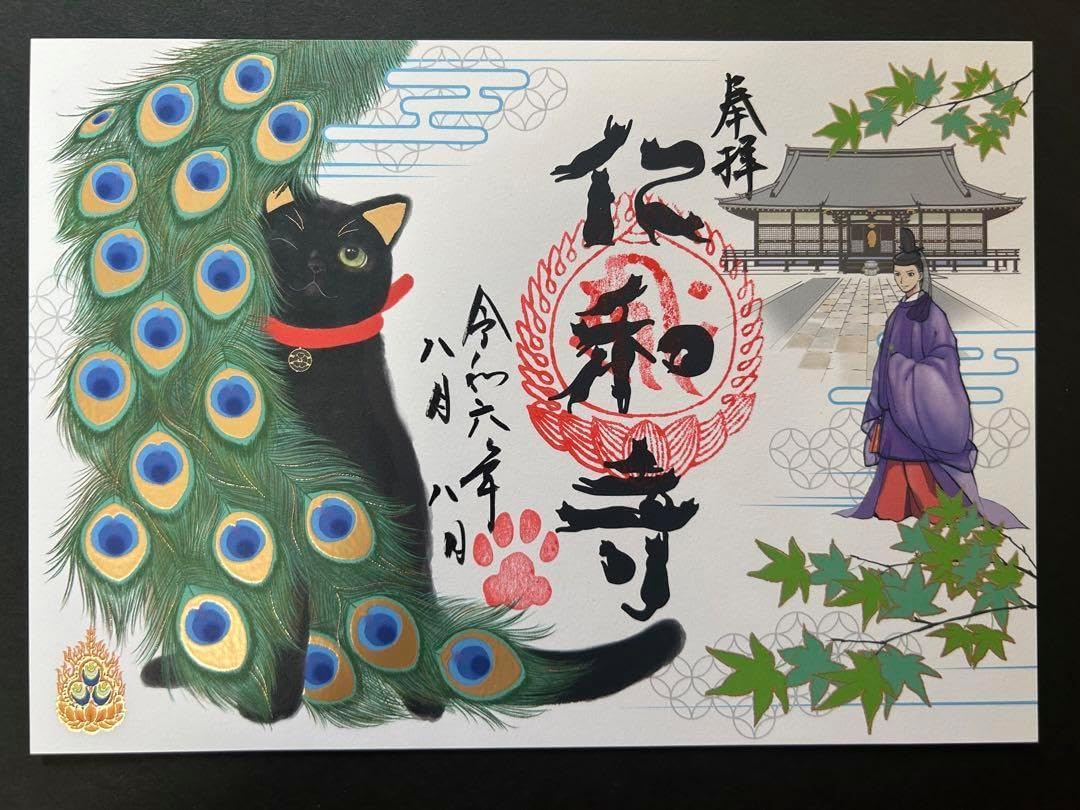 奉拝
仁和寺
令和六年
八月
八日